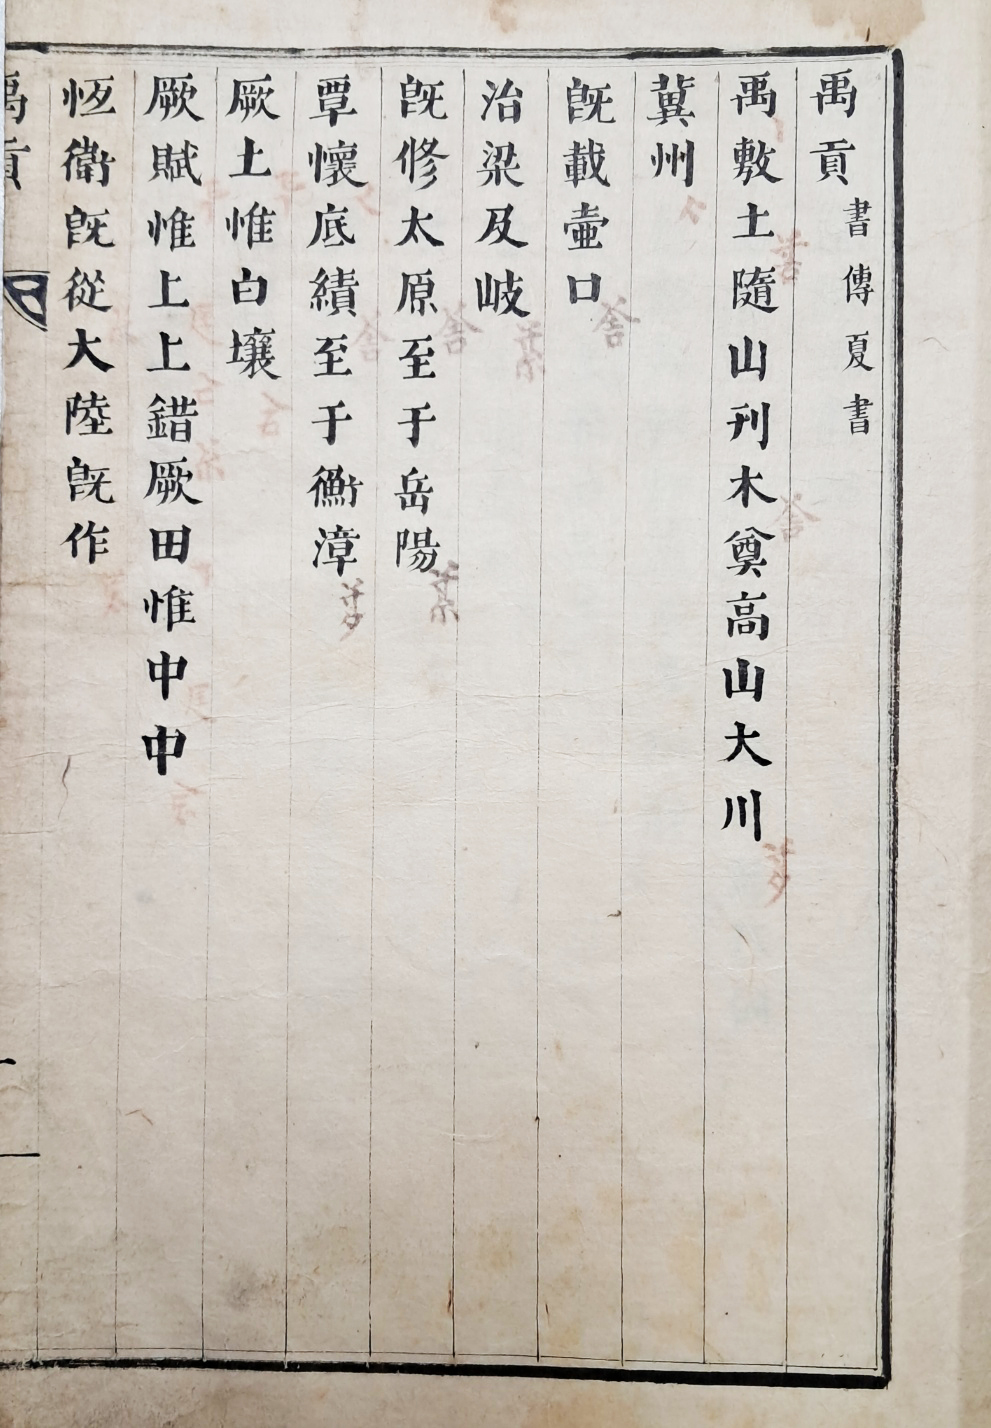 禹貢 書傳夏書
禹敷土隨山刊木奠高山大川
冀州
旣載壷口
治梁及岐
旣修太原至于岳陽
覃懷底績至于衡漳
厥土惟白壤
厥賦惟上上錯厥田惟中中
恆衛旣從大陸旣作
禹貢